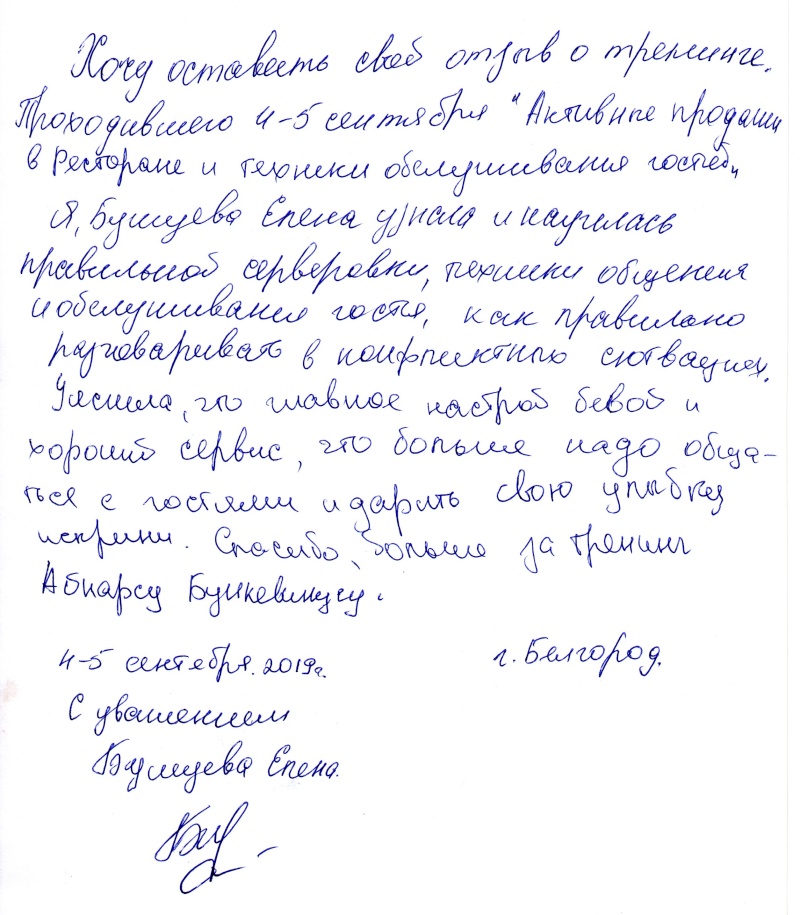 Хочу оставить свой отзыв о тренинге.
Проходившего 4-5 сентября "Активные продажи
в Ресторане и техники обслуживания гостей„
Я, Елена узнала и научилась
правильной серверовки, техники общения
и обслуживания гостя, как правильно
разговаривать в конфликтных ситвациях.
Уяснила, что главное настрой бевой и
хороший сервис, что больше надо обща-
ться с гостями и дарить свою улыбку
искрини. Спасибо, больше за тренинг
4-5 сентября. 2019г.
г. Белгород.
С уважением
Елена.